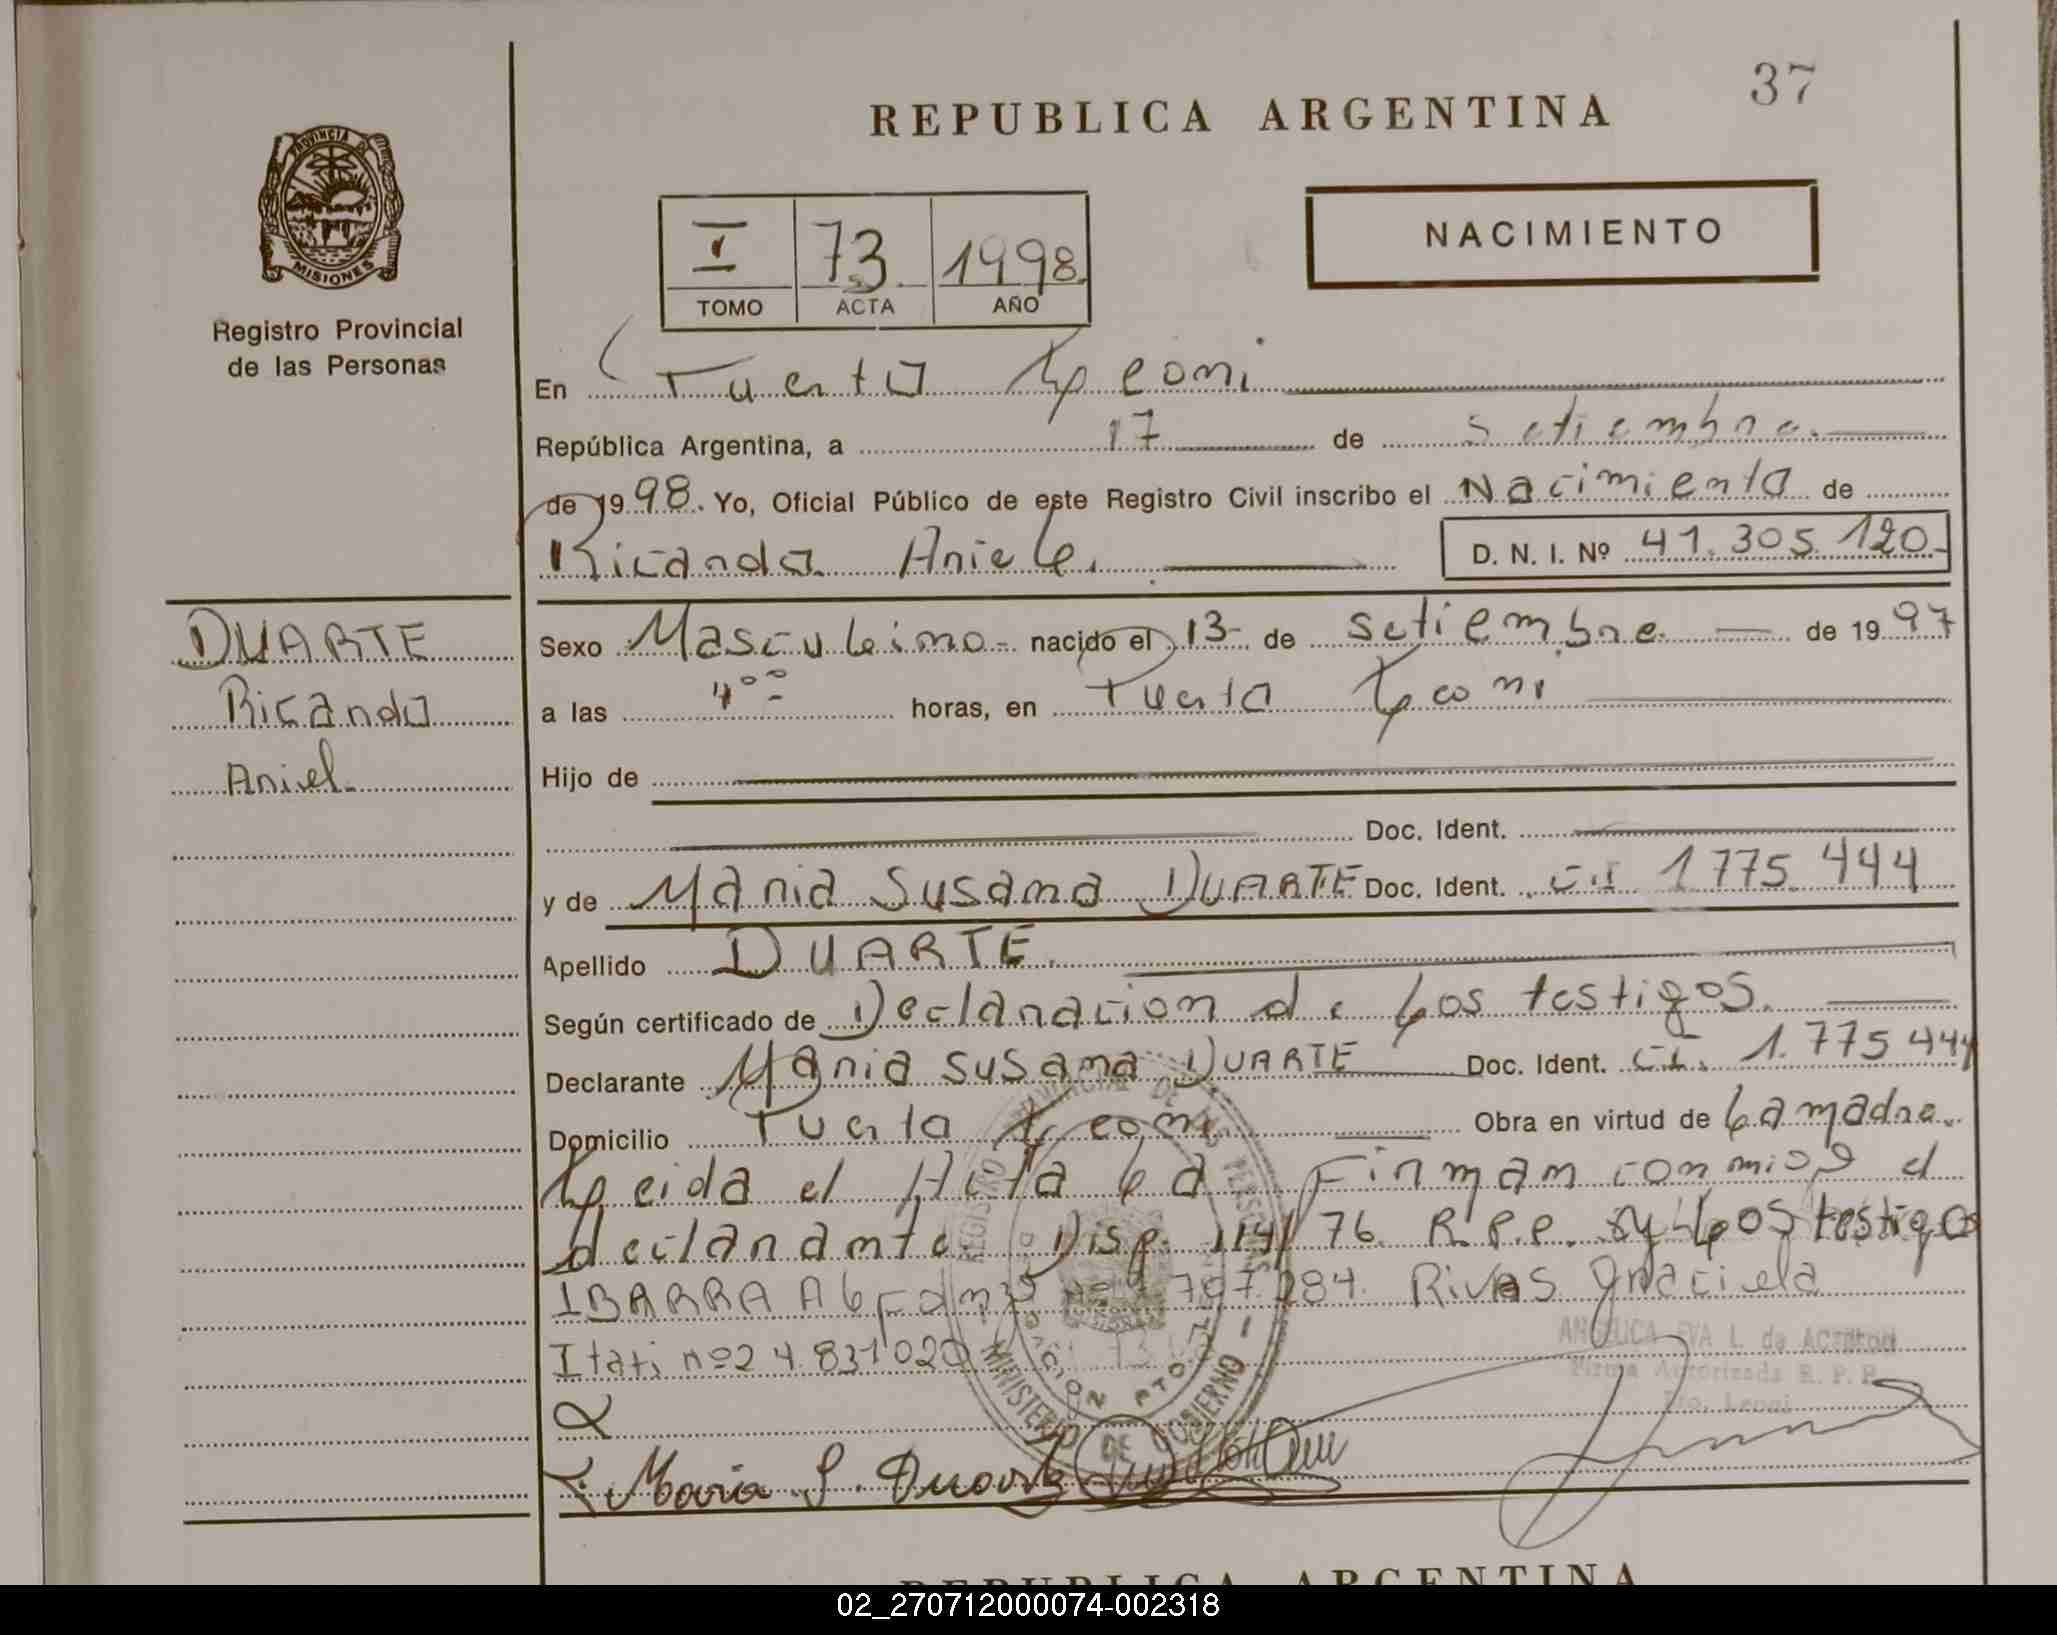 37
REPUBLICA ARGENTINA
PROVINCIA DE
MISIONES
Registro Provincial
de las Personas
NACIMIENTO
I 73 1998
TOMO ACTA AÑO
En Puerto Leoni
República Argentina, a 17 de Setiembre.
de 1998. Yo, Oficial Público de este Registro Civil inscribo el Nacimiento de
Ricardo Ariel. D. N. I. Nº 41.305.120-
DUARTE
Ricardo
Ariel.
Sexo Masculino- nacido el 13- de Setiembre. de 1997
a las 4°° horas, en Puerto Leoni
Hijo de
Doc. Ident.
y de Maria Susana DUARTE Doc. Ident. C.I 1775.444
Apellido DUARTE.
Según certificado de Declaracion de Los testigos.
Declarante Maria Susana DUARTE Doc. Ident. C.I. 1.775 444
Domicilio Puerto Leoni Obra en virtud de La madre.
Leida el Acta La Firman conmigo el
declarante. Disp. 114/76. R.P.P. y Los testigos
IBARRA 284. Rivas Graciela
Itati nº 24.831020
ANGELICA EVA L. de
Firma Autorizada R. P. P.
Pto. Leoni
REGISTRO PROVINCIAL DE LAS PERSONAS
MINISTERIO DE GOBIERNO
Maria S. Duarte
REPUBLICA ARGENTINA
02_270712000074-002318